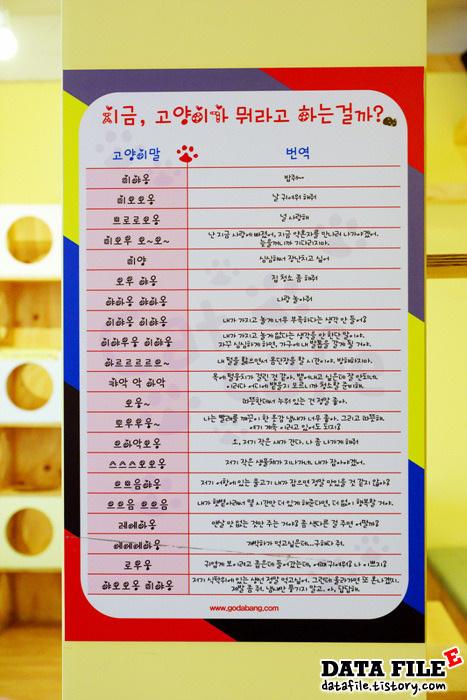 지금, 고양이가 뭐라고 하는걸까?
고양이말 번역
미야옹 밥줘~
미오오옹 날 귀여워 해줘
쁘로로오옹 널 사랑해
미오우 오~오~ 난 지금 사랑에 빠졌어, 지금 약혼자를 만나러 나가야겠어.
늦을꺼니까 기다리지마.
미양 심심해서 장난치고 싶어
오우 야옹 집 청소 좀 해줘
야야옹 야야옹 나랑 놀아줘
이야옹 이야옹 내가 가지고 놀게 너무 부족하다는 생각 안 들어?
이야우옹 이야옹 내가 가지고 놀게 없다는 생각을 안 한단 말이야.
자꾸 심심하게 하면, 가구에 내 발톱을 갈게 될 거야.
하르르르르오~ 내 털을 핥으면서 몸단장을 할 시간이야. 방해하지마.
캬악 악 하악 목에 털뭉치가 걸린 것 같아. 뱉어내고 싶은데 잘 안되네.
이러다 어디에 뱉을지 모르니까 청소할 준비해.
오옹~ 따뜻한데서 누워 있는 건 정말 좋아.
토우우옹~ 나는 빨래를 깨끗이 한 옷감 냄새가 너무 좋아. 그리고 따뜻해.
여기 계속 이러고 있어도 되지?
으하악오옹 오, 저기 작은 새가 간다. 나 좀 나가게 해줘
스스스오오옹 저기 작은 생물체가 지나가네. 내가 잡아야겠어.
으쁘음하옹 저기 어항에 있는 물고기 내가 잡으면 정말 맛있을 것 같지 않아?
으으음 으으음 내가 햇볕아래서 몇 시간만 더 있게 해준다면, 더 없이 행복할 거야.
레레하옹 맨날 맛 없는 것만 주는 거야? 좀 색다른 걸 주면 어떨까?
에에에하옹 개박하가 먹고싶은데...구해다 줘.
로우옹 귀엽게 보이려고 좁은데 들어갔는데, 어때 귀여워? 나 이쁘지?
야오오옹 미야옹 저기 식탁위에 있는 생선 정말 먹고싶어. 그런데 올라가면 또 혼나겠지.
제발 좀 줘. 냄새만 풍기지 말고. 아, 답답해.
www.godabang.com
DATA FILE E
datafile.tistory.com